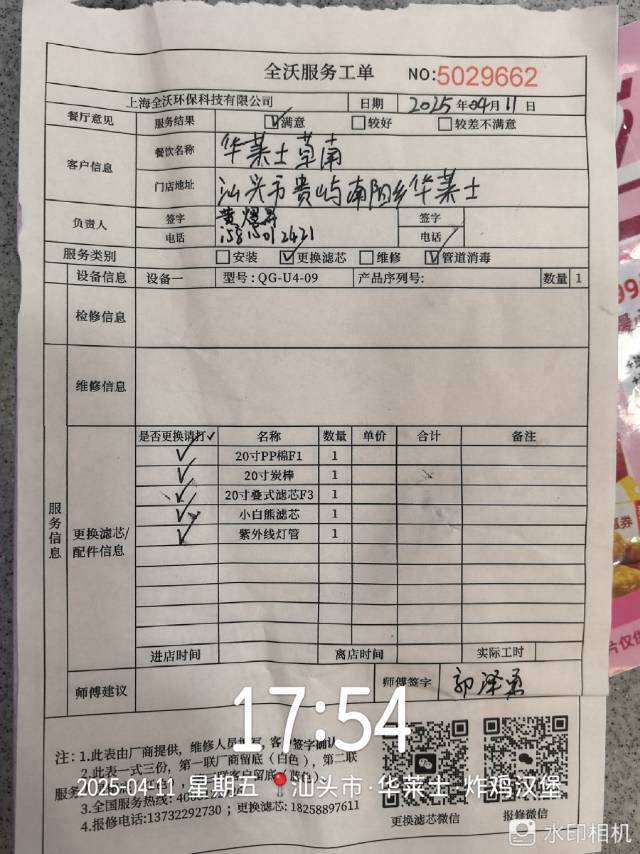 全沃服务工单 NO:5029662
上海全沃环保科技有限公司 日期 2025年04月11日
餐厅意见 服务结果 ☑满意 □较好 □较差不满意
客户信息 餐饮名称 华莱士草南
门店地址 汕头市贵屿南阳乡华莱士
负责人 签字 签字
电话 电话
服务类别 □安装 ☑更换滤芯 □维修 ☑管道消毒
设备信息 设备一 型号:QG-U4-09 产品序列号: 数量 1
检修信息
维修信息
服务信息
更换滤芯/配件信息
是否更换请打✓ 名称 数量 单价 合计 备注
✓ 20寸PP棉F1 1
✓ 20寸炭棒 1
✓ 20寸叠式滤芯F3 1
✓ 小白熊滤芯 1
✓ 紫外线灯管 1
进店时间 离店时间 实际工时
师傅建议 师傅签字 郭泽勇
17:54
注:1.此表由厂商提供,维修人员填写,客户签字确认
2.此表一式三份,第一联厂商留底(白色),第二联
2025-04-11 星期五 汕头市·华莱士·炸鸡汉堡
3.全国服务热线:
4.报修电话:13732292730;更换滤芯:18258897611
更换滤芯微信 报修微信
水印相机